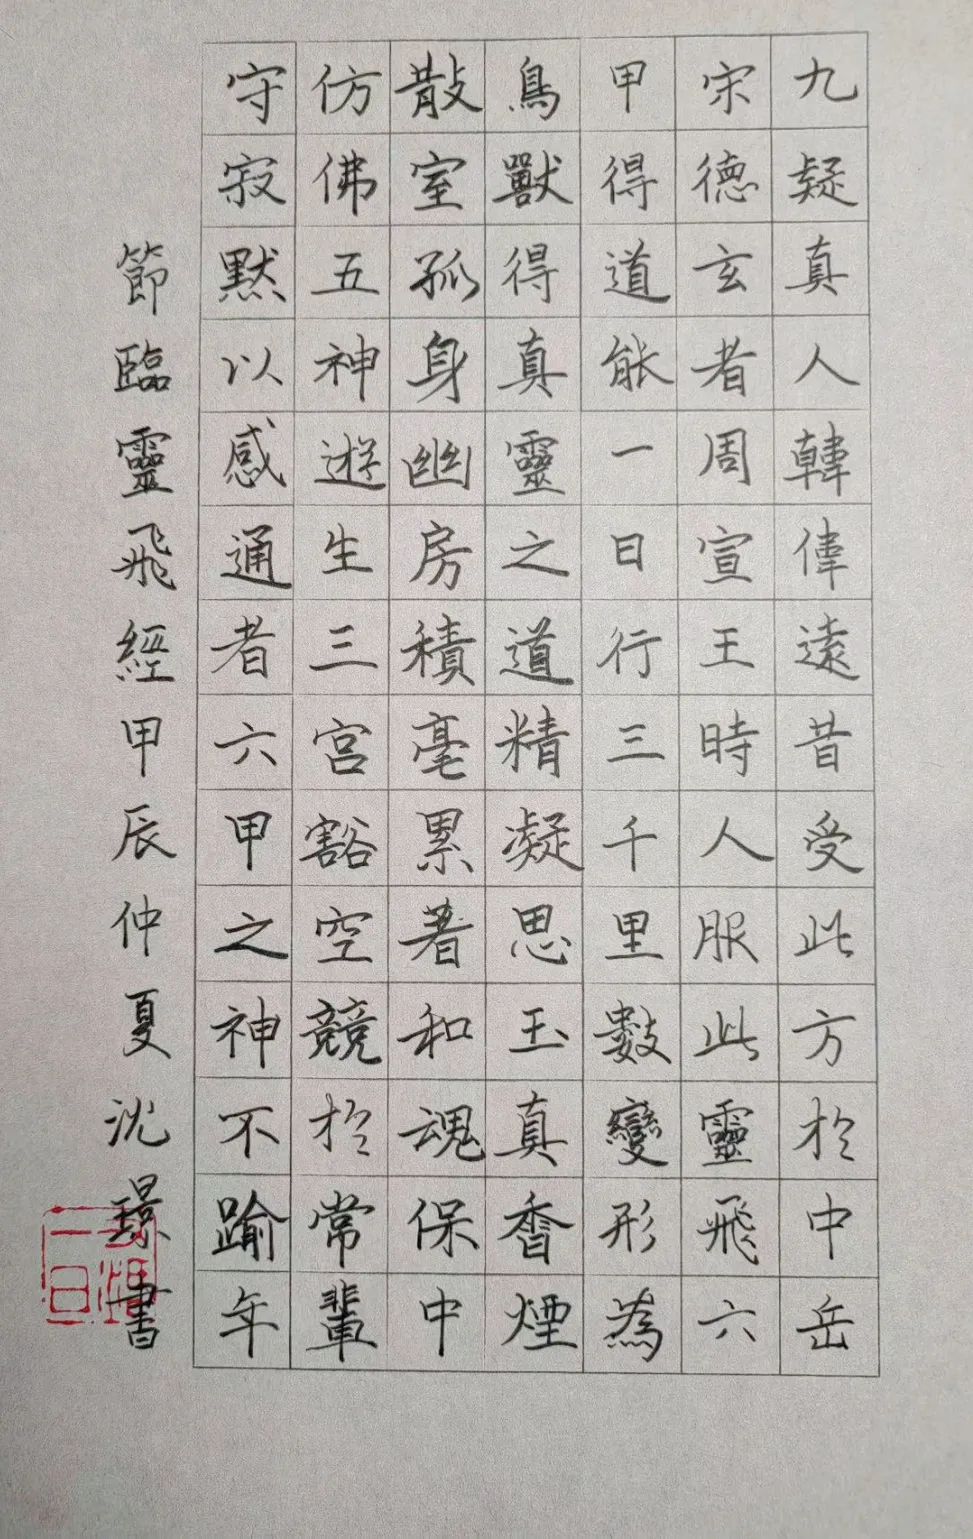 九疑真人韓偉遠昔受此方於中岳
宋德玄者周宣王時人服此靈飛六
甲得道能一日行三千里數變形為
鳥獸得真靈之道精凝思玉真香煙
散室孤身幽房積毫累著和魂保中
仿佛五神遊生三宮豁空競於常輩
守寂默以感通者六甲之神不踰年
節臨靈飛經甲辰仲夏沈璟書